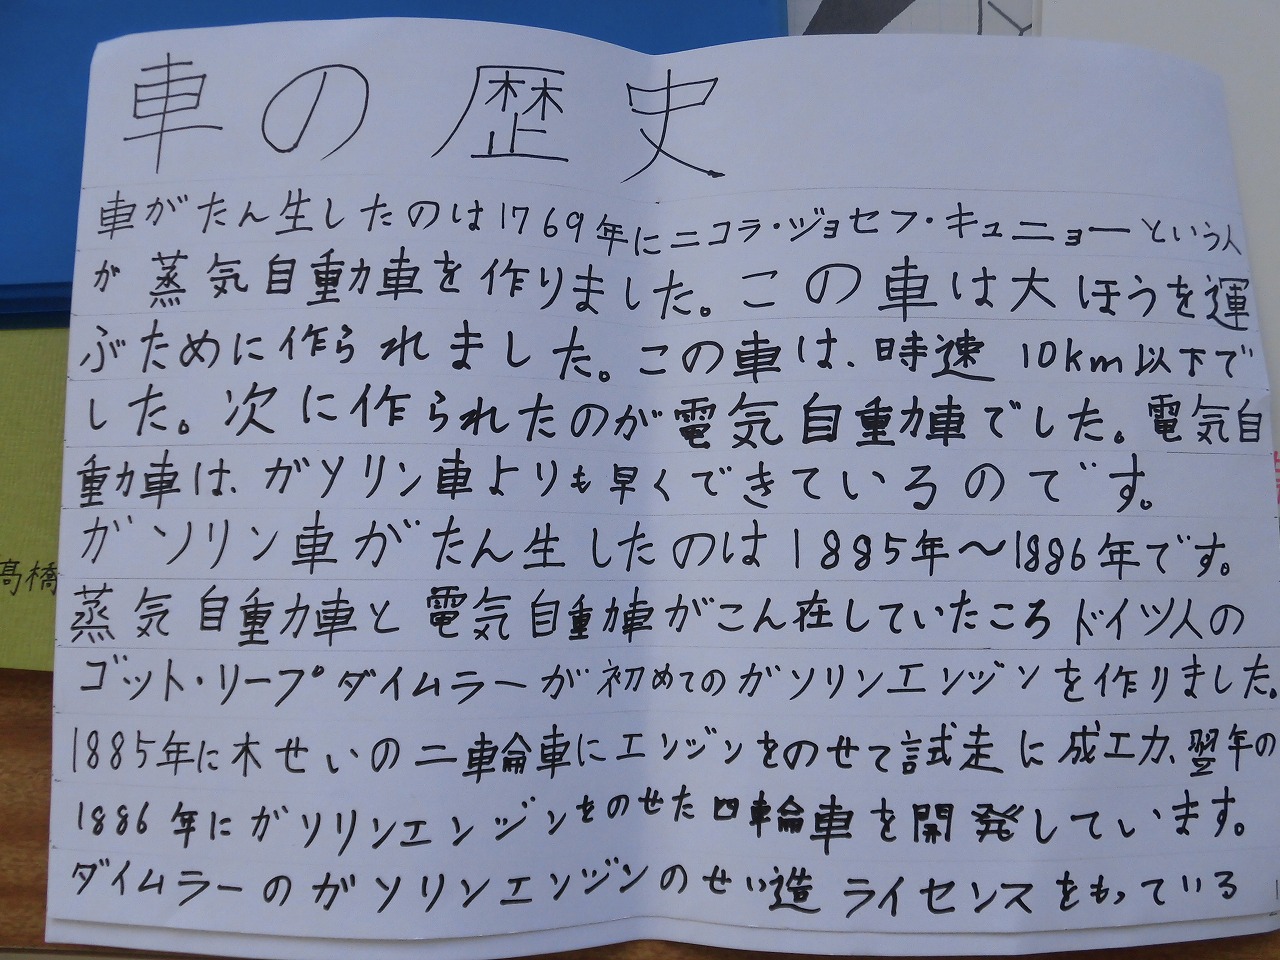 車の歴史
車がたん生したのは1769年にニコラ・ジョセフ・キュニョーという人
が蒸気自動車を作りました。この車は大ほうを運
ぶために作られました。この車は、時速10km以下で
した。次に作られたのが電気自動車でした。電気自
動車は、ガソリン車よりも早くできているのです。
ガソリン車がたん生したのは1885年～1886年です。
蒸気自動車と電気自動車がこん在していたころドイツ人の
ゴット・リープダイムラーが初めてのガソリンエンジンを作りました。
1885年に木せいの二輪車にエンジンをのせて試走に成工力、翌年の
1886年にガソリンエンジンをのせた四輪車を開発しています。
ダイムラーのガソリンエンジンのせい造ライセンスをもっている
高橋